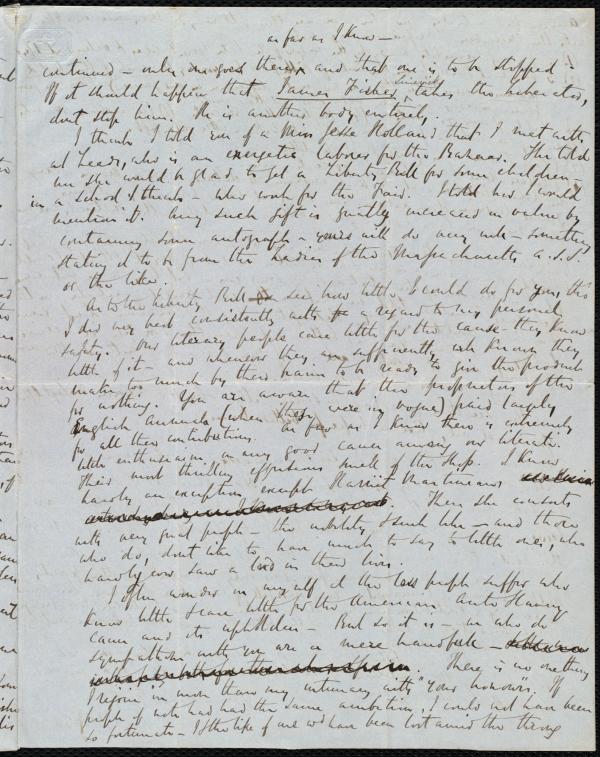 as far as I know –
continued – only one goes there, and that one is to be stopped!
If it should happen that James Fisher, takes the Liberator,
dont stop him. He is another body entirely.
I think I told you of a Miss Jesse Holland that I met with
at Leeds, who is an energetic laborer for the Bazaar. She told
me she would be glad to get a Liberty Bell for some children –
in a School I think – who work for the Fair. I told her I would
mention it. Any such gift is greatly increased in value by
containing some autograph – yours will do very well – something
stating it to be from the Ladies of the Massachusetts A. S. S.
or the like.
As to the Liberty Bell – see how little I could do for you, tho
I did my best consistently with a regard to my personal
safety. Our literary people care little for the cause – they know
little of it – and whenever they are sufficiently well known they
make too much by their pains to be ready to give the product
for nothing. You are aware that the proprietors of the
English Annuals (when they were in vogue) paid largely
for all their contributions. As far as I know there is extremely
little enthusiasm in any good cause among our literati.
Their most thrilling effusions smell of the shop. I know
hardly an exception except Harriet Martineau
Then she consorts
with very great people – the nobility & such like – and those
who do, dont like to have much to say to little ones, who
hardly ever saw a lord in their lives.
I often wonder in myself at the few people here who
know little & care little for the American Anti Slavery
cause and its upholders – But so it is – we who do
sympathise with you are a mere handful –
There is no one thing
I rejoice in more than my intimacy with "your honours". If
people of note had had the same ambition, I could not have been
so fortunate – I & the like of me wd have been lost amid the throng